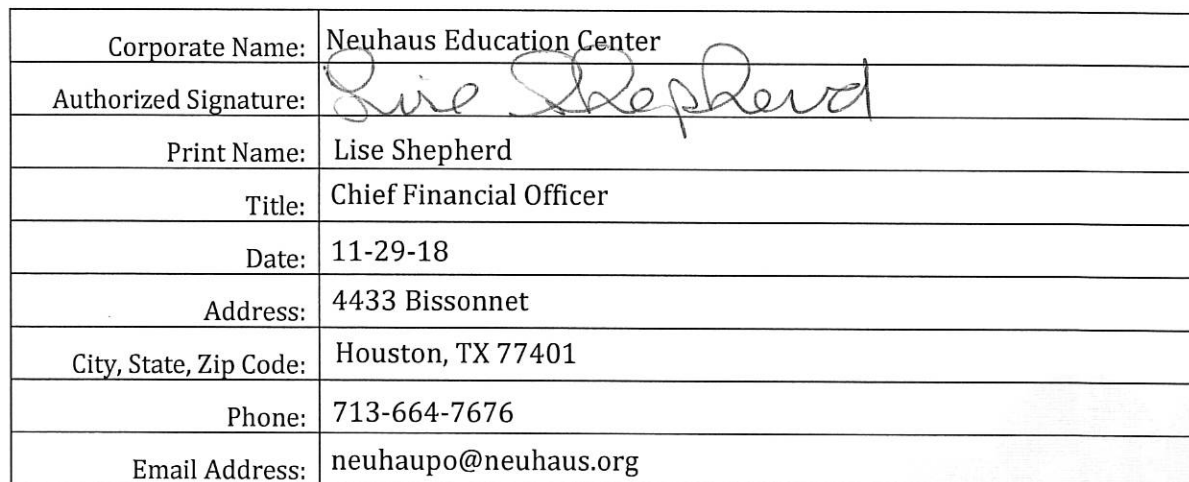 Corporate Name: Neuhaus Education Center
Authorized Signature: Lise Shepherd
Print Name: Lise Shepherd
Title: Chief Financial Officer
Date: 11-29-18
Address: 4433 Bissonnet
City, State, Zip Code: Houston, TX 77401
Phone: 713-664-7676
Email Address: neuhaupo@neuhaus.org